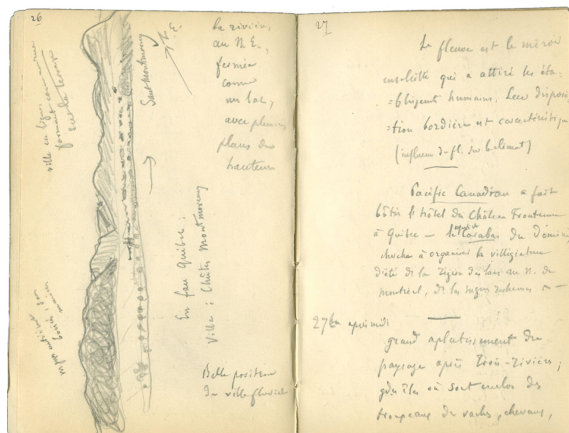 26
La rivière,
au N.E.,
fermée
comme
un lac,
avec plusieurs
plans de
hauteurs
Saut Montmorency
N.E.
ville en ligne
formant
sur la terre
En face Québec :
Ville ; Chûtes Montmorency
Belle position
de ville fluviale
27
Le fleuve est le miroir
ensoleillé qui a attiré les éta-
=blissements humains. Leur disposi-
=tion bordière est caractéristique
(influence du fl. sur le climat)
Pacific Canadian a fait
bâtir l'hôtel du Château Frontenac
à Québec –
cherche à organiser la villégiature
d'été de la région des lacs au N. de
Montréal, de la région
27bre après midi
grand aplatissement du
paysage après Trois-Rivières ;
gdes îles où sont enclos des
troupeaux de vaches, chevaux,